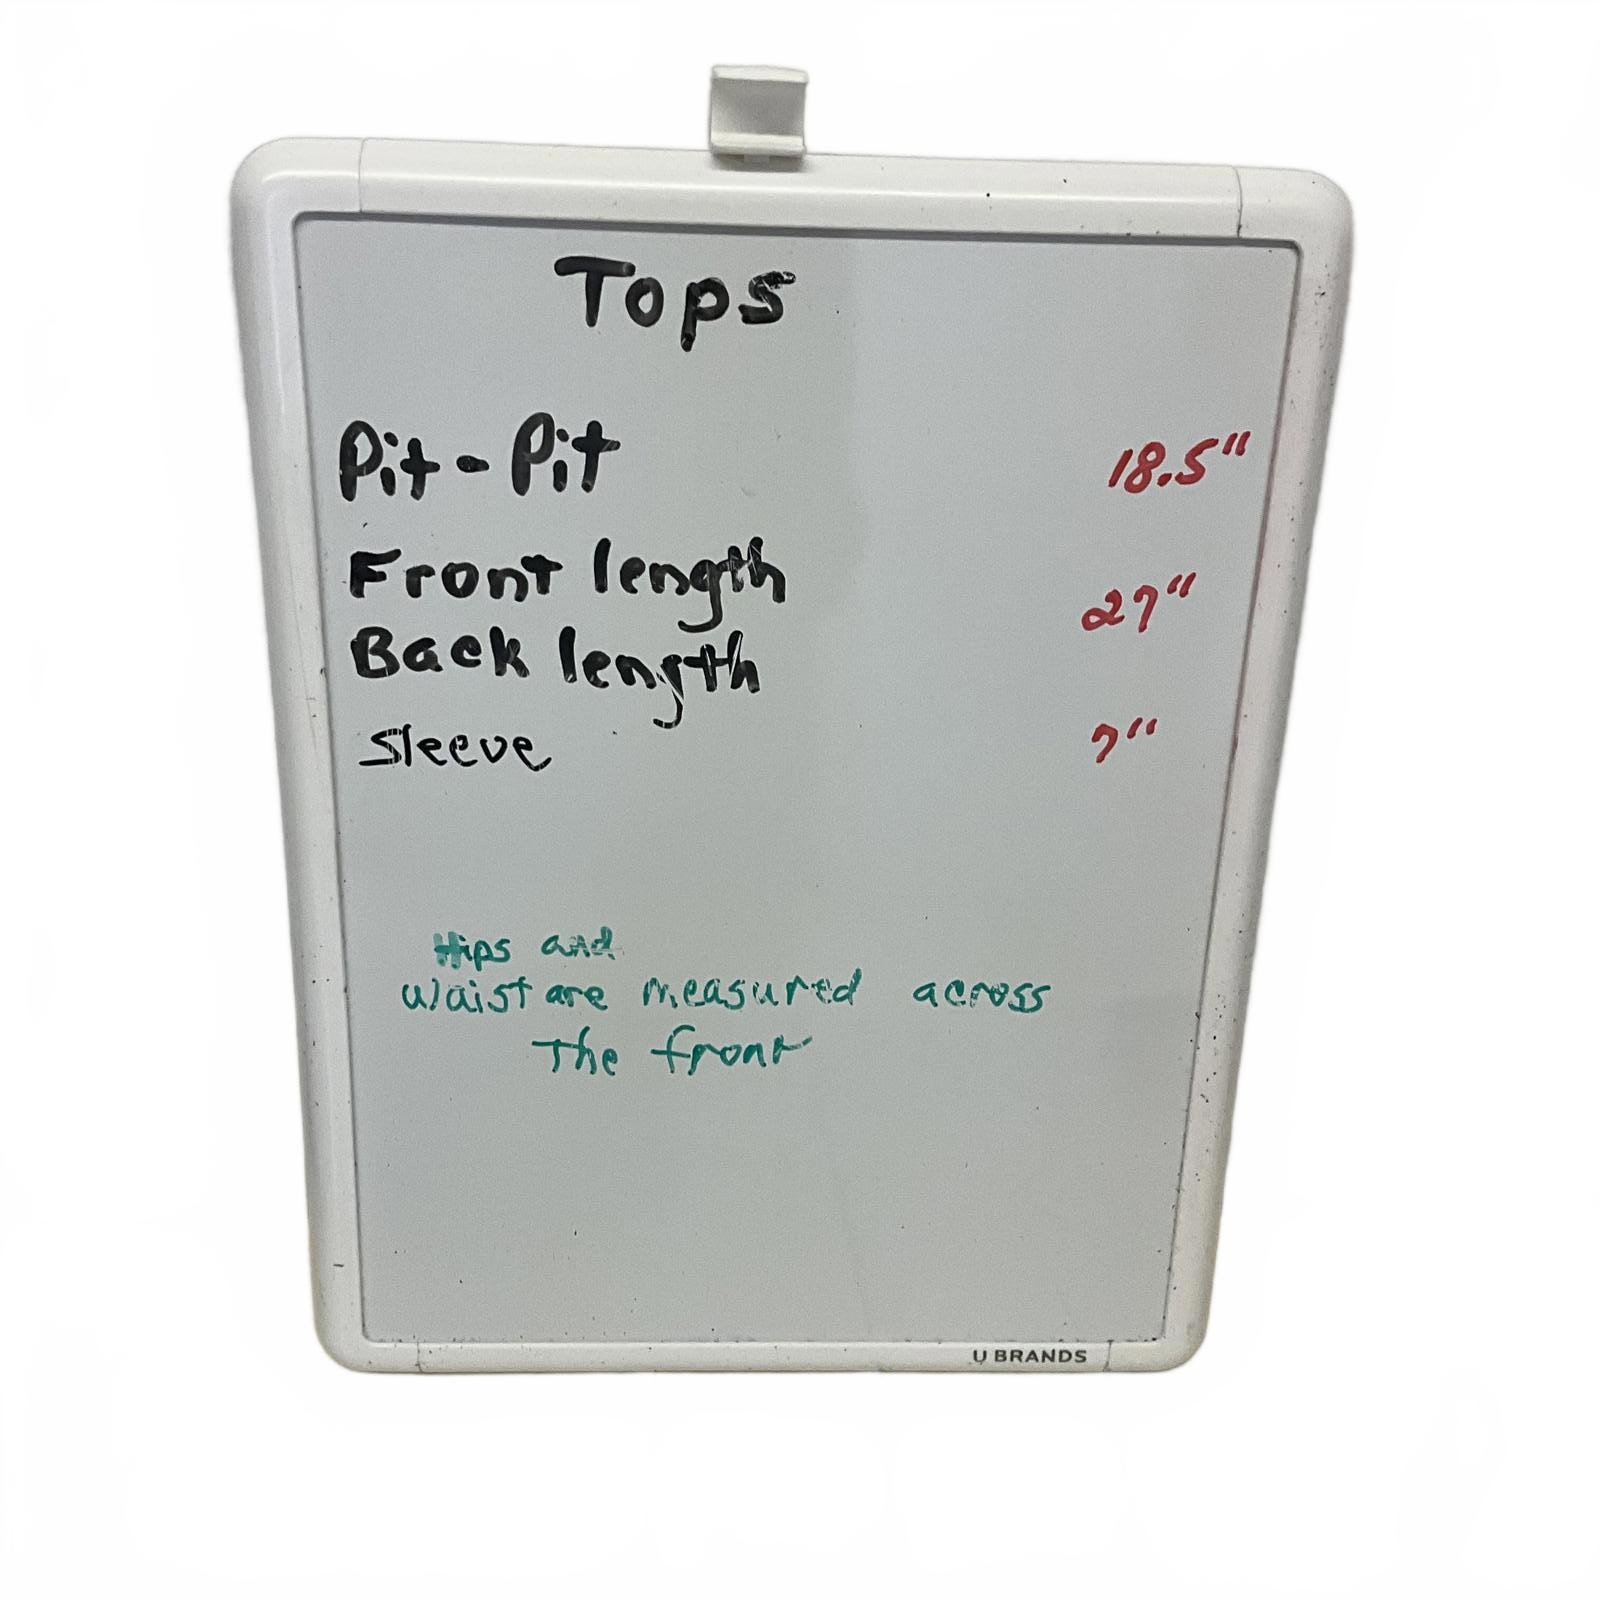 Tops
Pit-Pit 18.5"
Front length 27"
Back length
Sleeve 7"
Hips and
waist are measured across
The front
U BRANDS